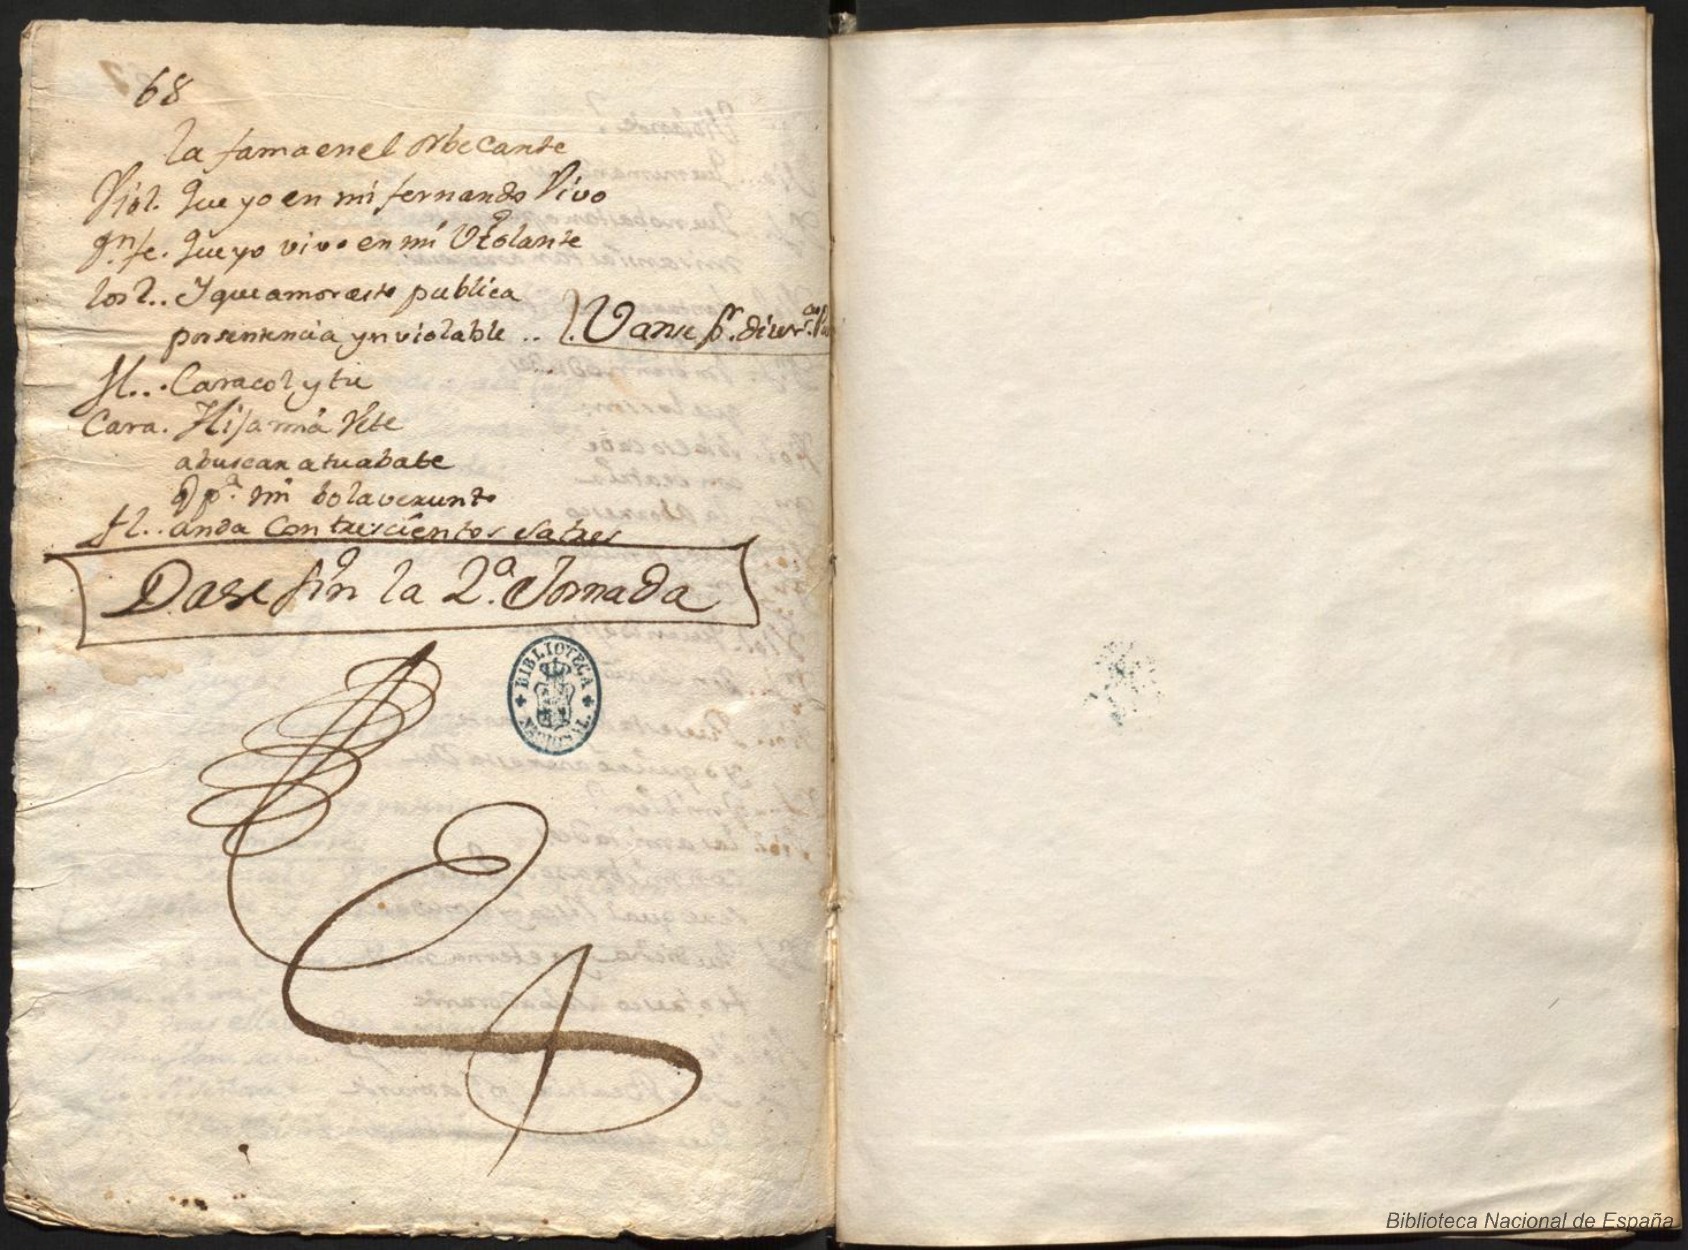 68
la fama en el orbe cante
Viol. Que yo en mi fernando Vivo
Que yo vivo en mi Violante
los 2.. Y que amor esto publica
por sentencia ynviolable ..
Vanse pr. divers.
Caracol y tu
Cara. Hija mia Vete
a buscar a tu abate
mi bolaverunt
anda con trescientos satres
Dase fin la 2.a Jornada
BIBLIOTECA NACIONAL.
Biblioteca Nacional de España